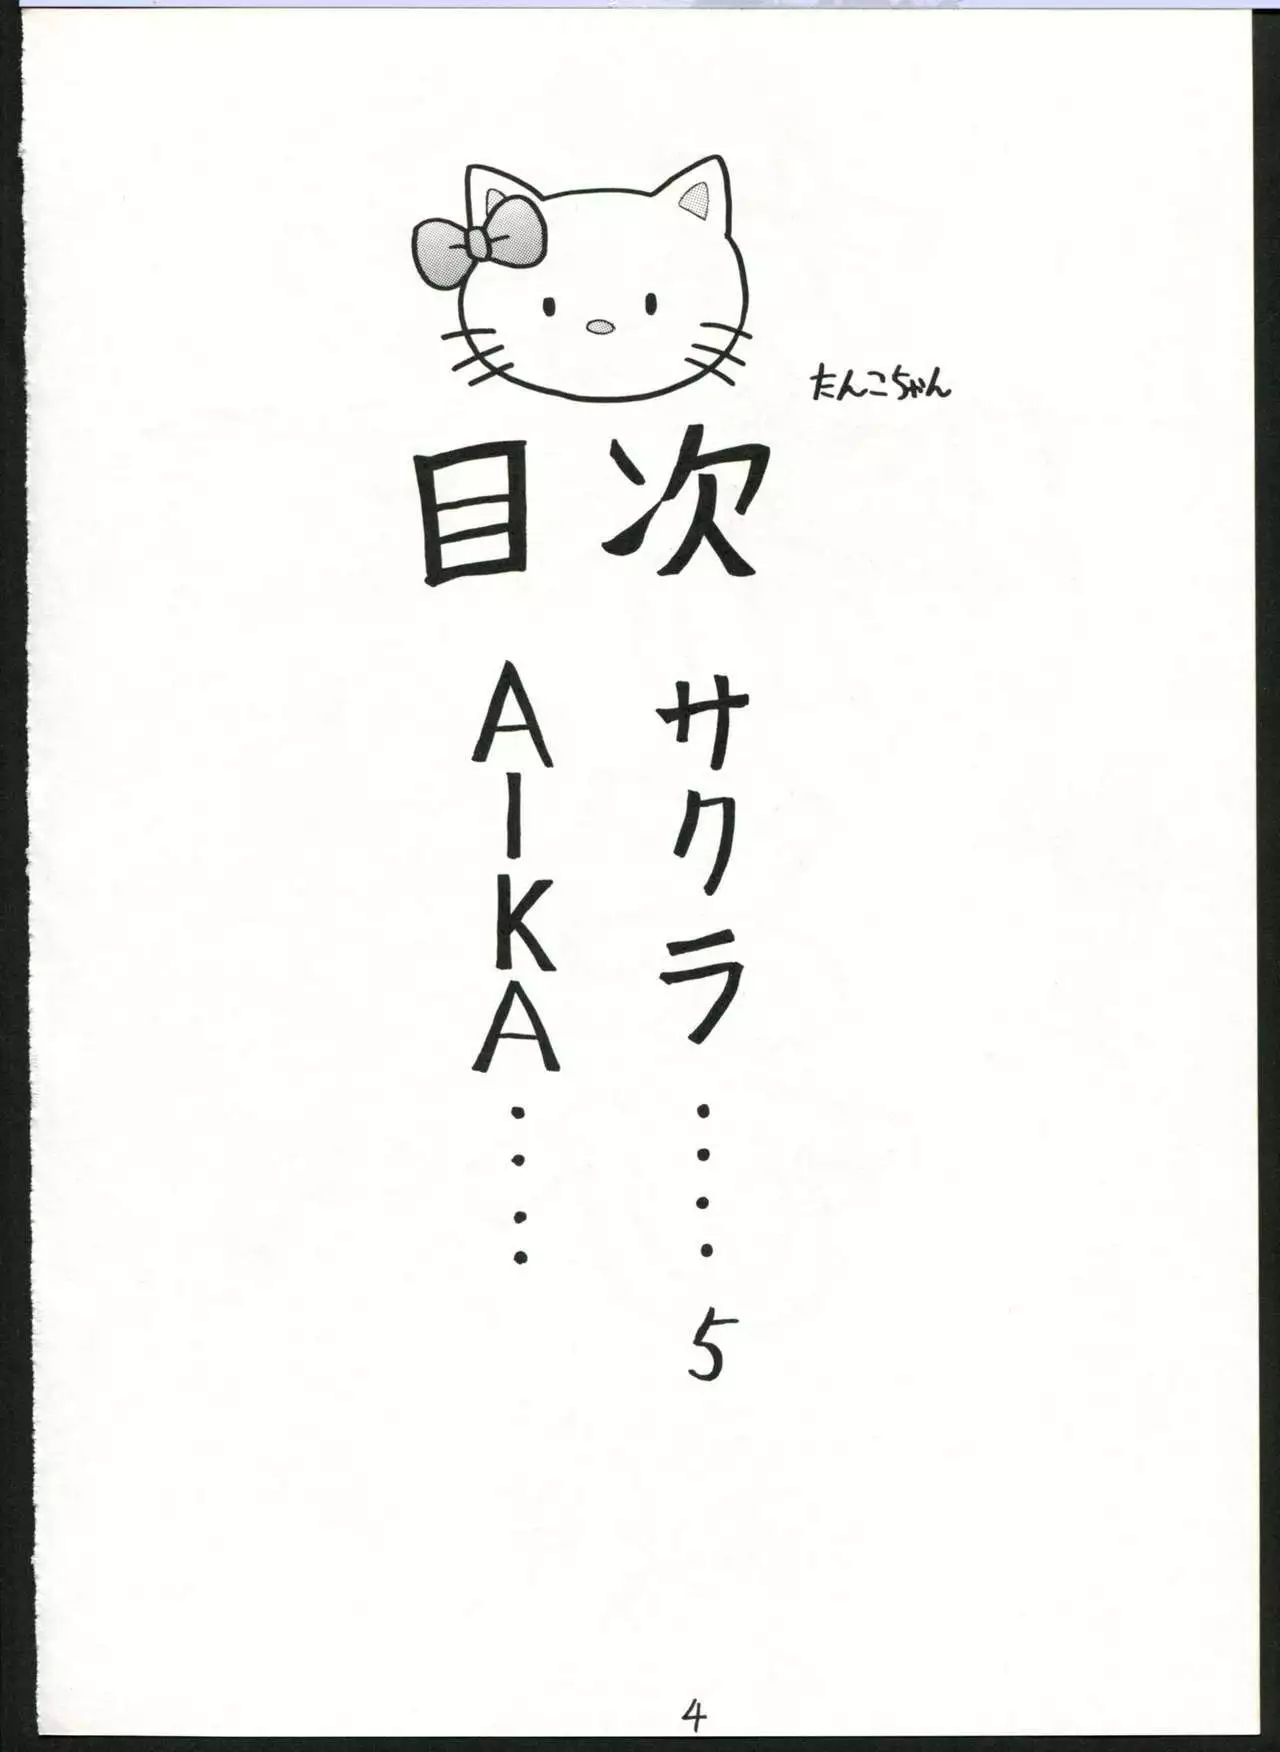 たんこちゃん
目次
サクラ‥‥5
AIKA‥‥
4